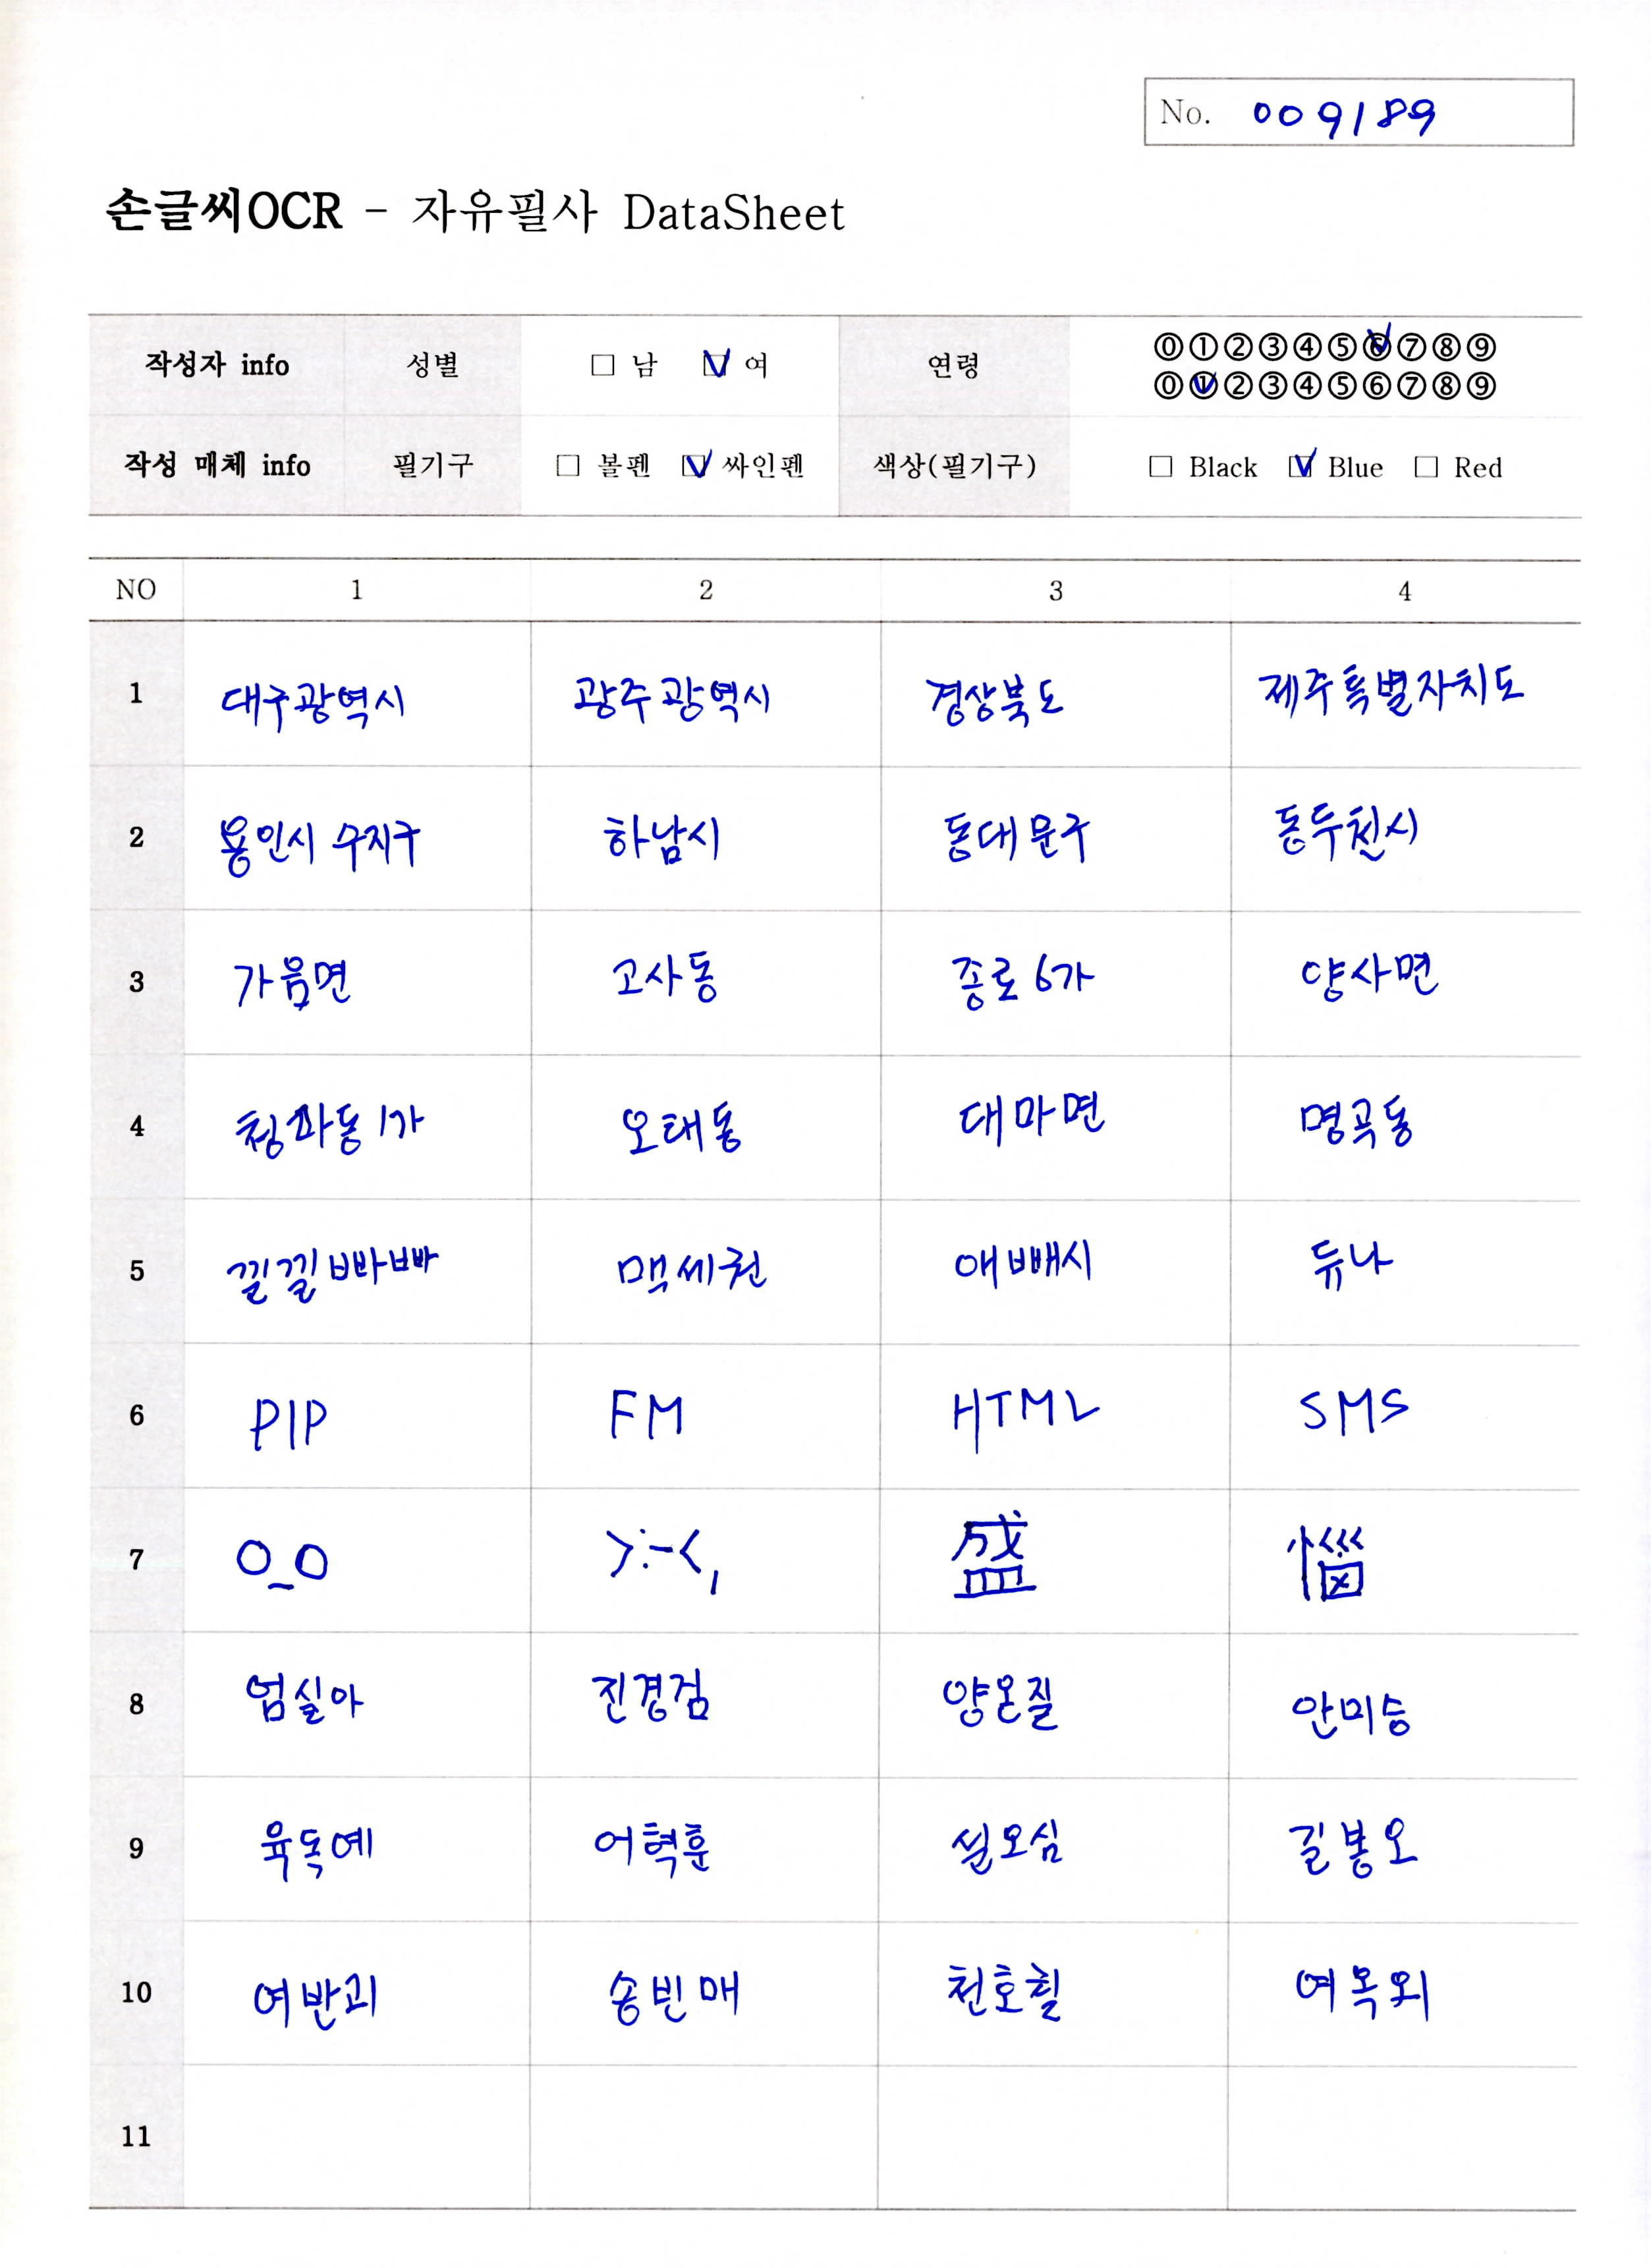 No. 009189
손글씨OCR - 자유필사 DataSheet
작성자 info 성별 □ 남 ☑ 여 연령 ⓪①②③④⑤⑥⑦⑧⑨
⓪①②③④⑤⑥⑦⑧⑨
작성 매체 info 필기구 □ 볼펜 ☑ 싸인펜 색상(필기구) □ Black ☑ Blue □ Red
NO 1 2 3 4
1 대구광역시 광주광역시 경상북도 제주특별자치도
2 용인시 수지구 하남시 동대문구 동두천시
3 가음면 고사동 종로6가 양사면
4 청파동1가 오태동 대마면 명곡동
5 낄낄빠빠 맥세권 애빼시 듀나
6 PIP FM HTML SMS
7 O_O >:-<, 盛 惱
8 엄실아 진경검 양온질 안미승
9 육독예 어혁훈 설오심 길봉오
10 여반괴 송빈매 천호힐 여옥외
11